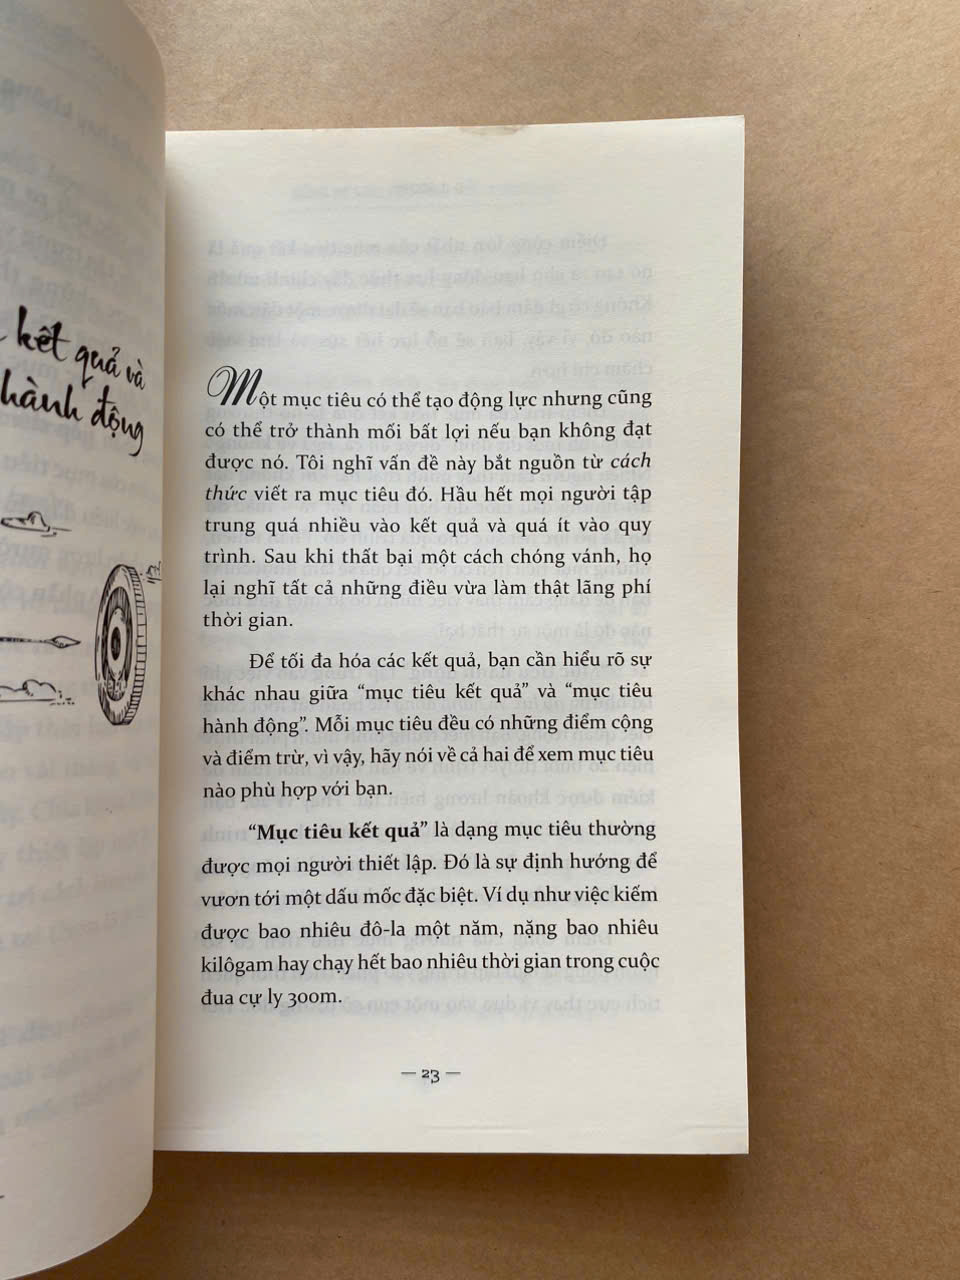 kết quả và
hành động
Một mục tiêu có thể tạo động lực nhưng cũng
có thể trở thành mối bất lợi nếu bạn không đạt
được nó. Tôi nghĩ vấn đề này bắt nguồn từ cách
thức viết ra mục tiêu đó. Hầu hết mọi người tập
trung quá nhiều vào kết quả và quá ít vào quy
trình. Sau khi thất bại một cách chóng vánh, họ
lại nghĩ tất cả những điều vừa làm thật lãng phí
thời gian.
Để tối đa hóa các kết quả, bạn cần hiểu rõ sự
khác nhau giữa “mục tiêu kết quả” và “mục tiêu
hành động”. Mỗi mục tiêu đều có những điểm cộng
và điểm trừ, vì vậy, hãy nói về cả hai để xem mục tiêu
nào phù hợp với bạn.
“Mục tiêu kết quả” là dạng mục tiêu thường
được mọi người thiết lập. Đó là sự định hướng để
vươn tới một dấu mốc đặc biệt. Ví dụ như việc kiếm
được bao nhiêu đô-la một năm, nặng bao nhiêu
kilôgam hay chạy hết bao nhiêu thời gian trong cuộc
đua cự ly 300m.
— 23 —